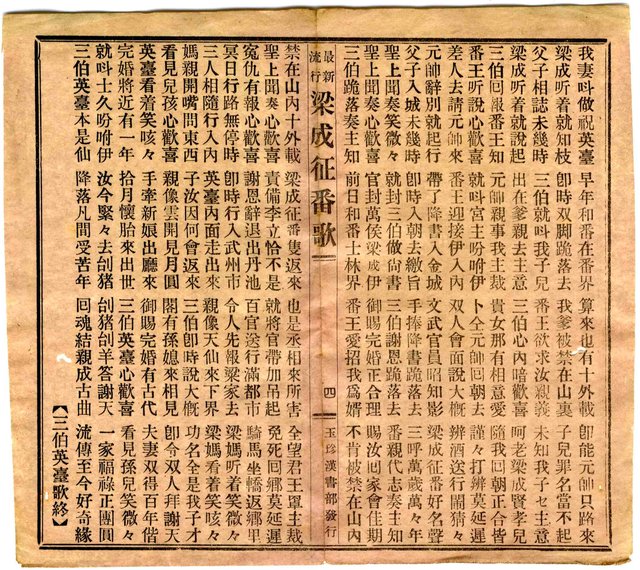 我妻叫做祝英臺 早年和番在番界 算來也有十外載 卽能元帥只路來
梁成听着就知枝 卽時双脚跪落去 我爹被禁在山裏 子兒罪名當不起
父子相誌未幾時 三伯就叫我子兒 番王欲求汝親義 未知我子乜主意
梁成听着就說起 出在爹親去主意 三伯心內暗歡喜 呵老梁成賢孝兒
三伯回報番王知 元帥親事我主裁 貴女那有相意愛 隨我回朝正合皆
番王听說心歡喜 就叫宮主吩咐伊 卜仝元帥回朝去 謹々打辨莫延遲
差人去請元帥來 番王迎接伊入內 双人會面說大慨 辨酒送行鬧猜々
元帥辭別就起行 帶了降書入金城 文武官員昭知影 梁成征番好名聲
父子入城未幾時 卽時入朝去繳旨 手捧降書跪落去 三呼萬歲萬々年
聖上聞奏笑微々 就封三伯做尙書 三伯謝恩跪落去 番親代志奏主知
聖上聞奏心歡喜 官封萬侯梁成伊 御賜完婚正合理 賜汝囘家會佳期
三伯跪落奏主知 前日和番士林界 番王愛招我為婿 不肯被禁在山內
最新流行 梁成征番歌 四 玉珍漢書部發行
禁在山內十外載 梁成征番隻返來 也是丞相來所害 全望君王單主裁
聖上聞奏心歡喜 責備李立恰不是 就將官帶加吊起 免死回鄉莫延遲
冤仇有報心歡喜 謝恩辭退出丹池 百官送行滿都市 騎馬坐轎返鄉里
冥日行路無停時 卽時行入武州市 令人先報梁家去 梁媽听着笑微々
三人相隨行入內 英臺內面走出來 親像天仙來下界 梁媽看着笑咳々
媽親開嘴問東西 子汝因何會返來 三伯卽時說大慨 功名全是我子才
看見兒孩心歡喜 親像雲開見月圓 閣有孫媳來相見 卽令双人拜謝天
英臺看着笑咳々 手牽新娘出廳來 御賜完婚有古代 夫妻双得百年偕
完婚將近有一年 拾月懷胎來出世 三伯英臺心歡喜 看見孫兒笑微々
就叫士久吩咐伊 汝今緊々去刣猪 刣猪刣羊答謝天 一家福祿正團圓
三伯英臺本是仙 降落凡間受苦年 囘魂結親成古曲 流傳至今好奇緣
【三伯英臺歌終】